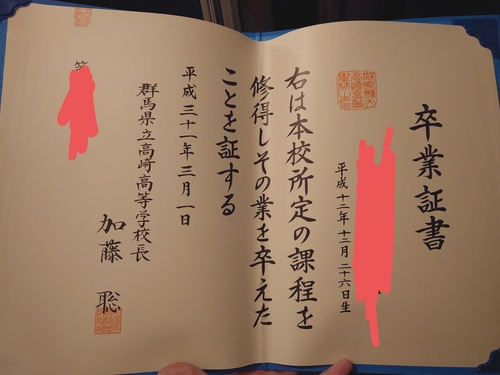 卒業証書
平成十二年十二月二十六日生
右は本校所定の課程を
修得しその業を卒えた
ことを証する
平成三十一年三月一日
群馬県立高崎高等学校長
加藤聡